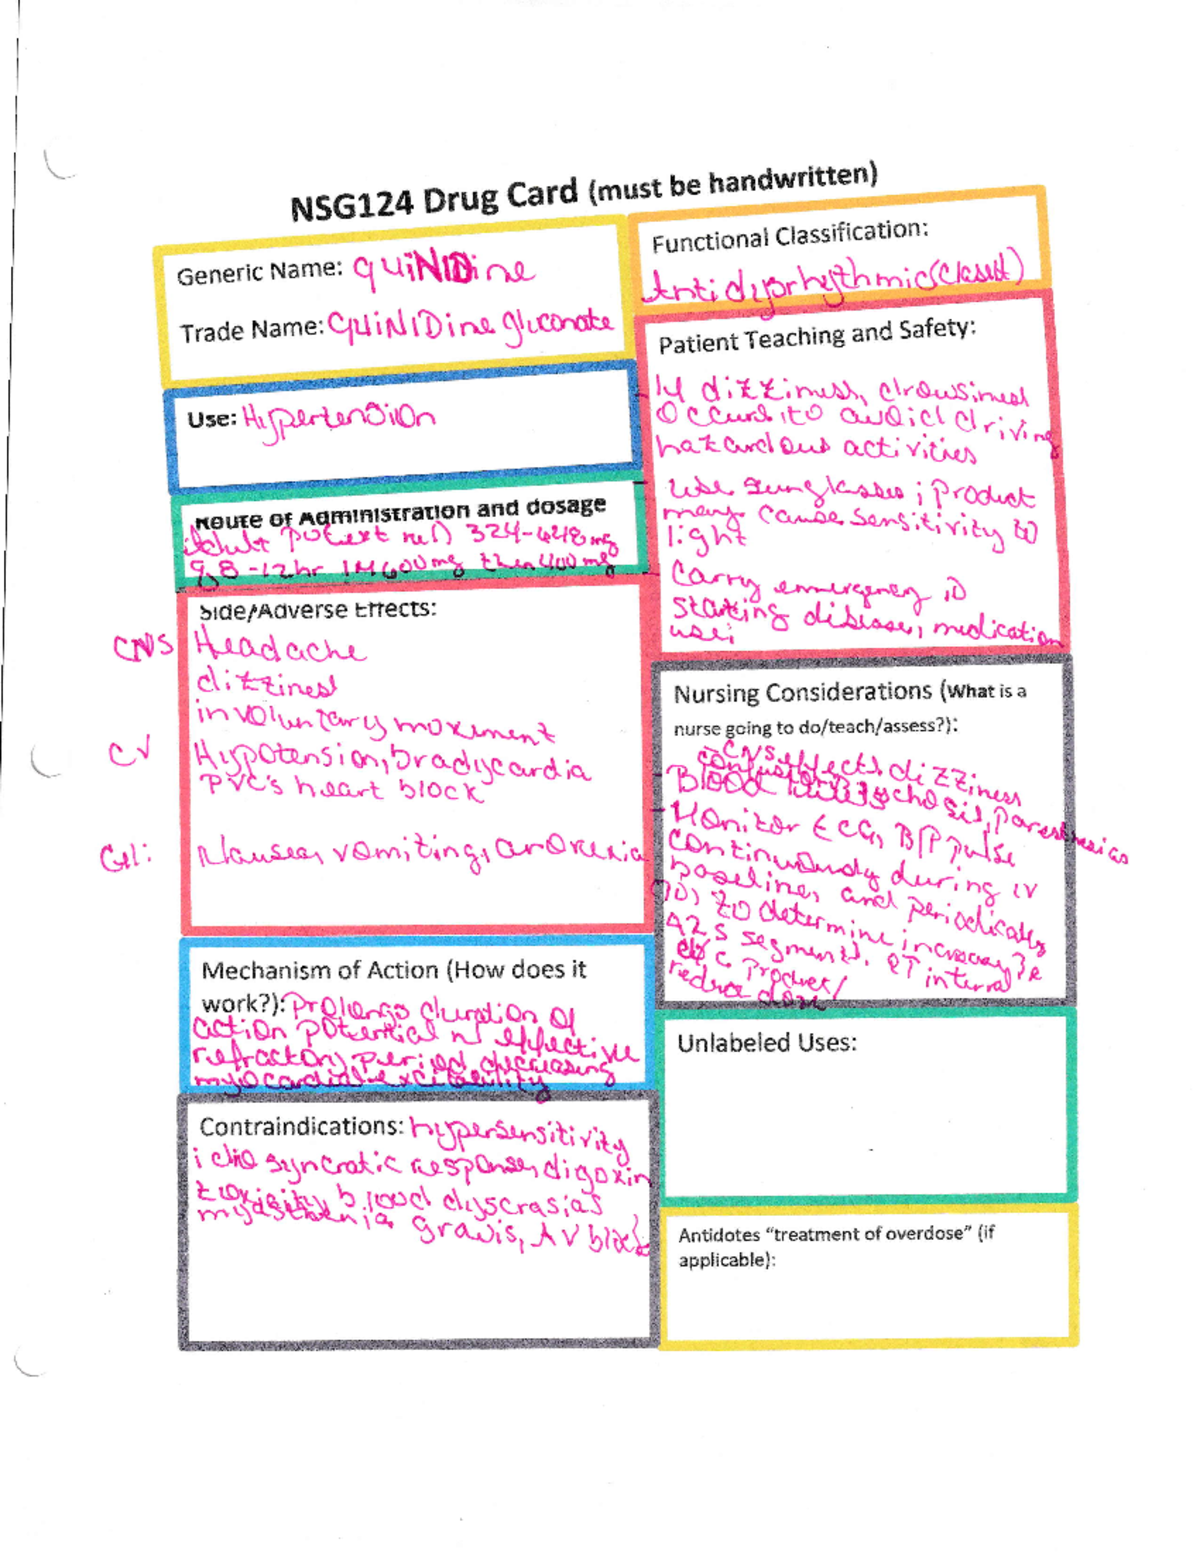 NSG124 Drug Card (must be handwritten)
Generic Name: quiNIDine
Trade Name: QUINIDine gluconate
Use: Hypertension
Route of Administration and dosage
Adult PO (ext rel) 324-648 mg
q 8-12hr IM 600 mg then 400 mg
Side/Adverse Effects:
CNS Headache
dizziness
involuntary movement
CV Hypotension, bradycardia
PVC's heart block
GI: Nausea, vomiting, anorexia
Mechanism of Action (How does it
work?): Prolongs duration of
action potential w/ effective
refractory period decreasing
myocardial excitability
Contraindications: hypersensitivity
idiosyncratic response, digoxin
toxicity blood dyscrasias
myasthenia gravis, AV block
Functional Classification:
Antidysrhythmic
Patient Teaching and Safety:
If dizziness, drowsiness
occurs to avoid driving
hazardous activities
use sunglasses; product
may cause sensitivity to
light
Carry emergency ID
stating disease, medication
use;
Nursing Considerations (What is a
nurse going to do/teach/assess?):
CNS effects dizziness
confusion psychosis, paresthesias
Blood
Monitor ECG, B/P pulse
continuously during IV
baseline, and periodically
to determine increased
segments, QT interval
product/
reduce dose
Unlabeled Uses:
Antidotes “treatment of overdose” (if
applicable):